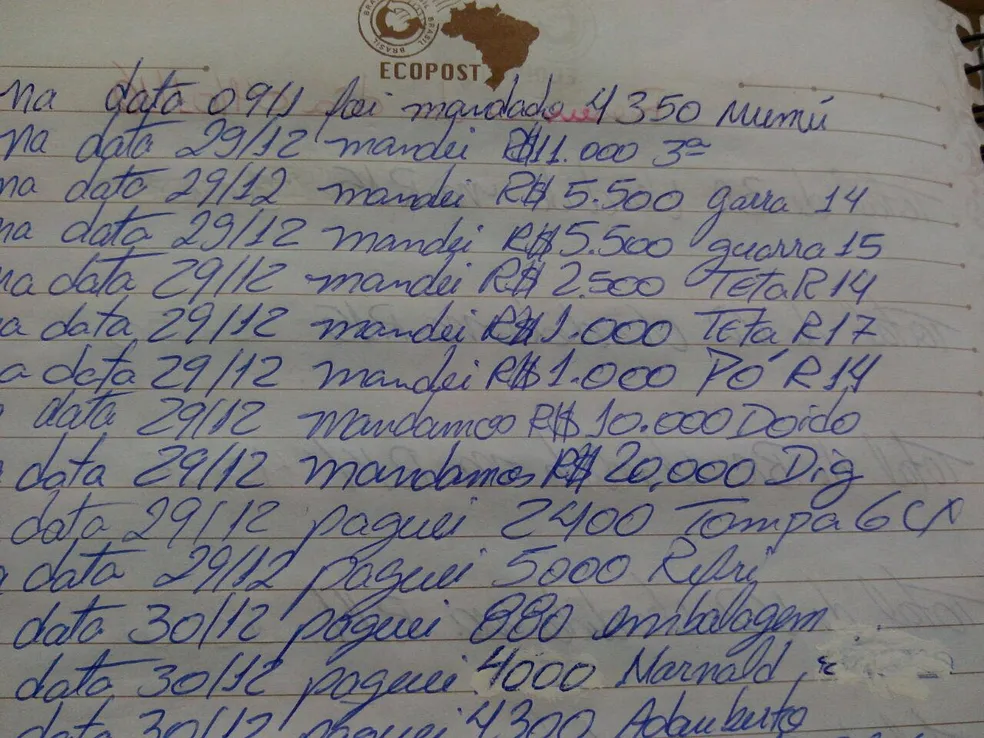 BRASIL
BRASIL
ECOPOST
na data 09/1 foi mandado 4350 Mumú
na data 29/12 mandei R$11.000 3ª
na data 29/12 mandei R$ 5.500 garra 14
na data 29/12 mandei R$5.500 guarra 15
na data 29/12 mandei R$ 2.500 TETA R14
a data 29/12 mandei R$1.000 TETA R17
a data 29/12 mandei R$1.000 PÓ R14
data 29/12 mandamos R$10.000 Doido
data 29/12 mandamos R$20,000 Dig
data 29/12 paguei 2400 Tampa 6 CX
data 29/12 paguei 5000 Refri
data 30/12 paguei 880 embalagem
data 30/12 paguei 4000 Marnald
data 30/12 paguei 4300 Adauberto